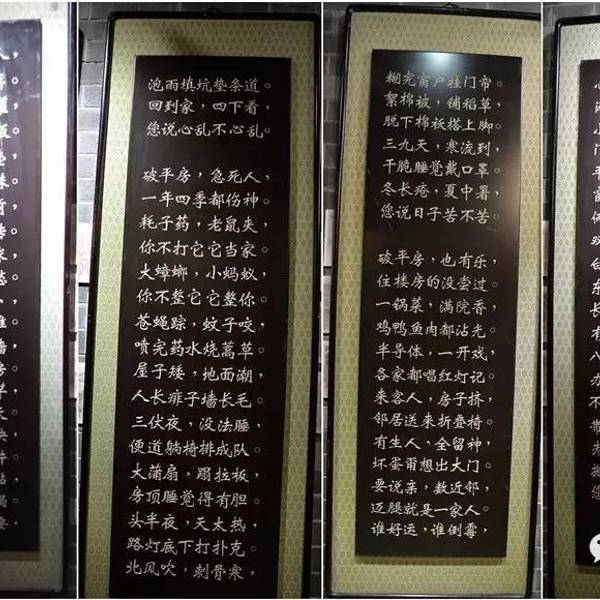 泡雨填坑垫条道。
回到家，四下看，
您说心乱不心乱。
破平房，急死人，
一年四季都伤神。
耗子药，老鼠夹，
你不打它它当家。
大蟑螂，小蚂蚁，
你不整它它整你。
苍蝇踪，蚊子咬，
喷完药水烧蒿草。
屋子矮，地面潮，
人长痱子墙长毛。
三伏夜，没法睡，
便道躺椅排成队。
大蒲扇，蹋拉板，
房顶睡觉得有胆。
头半夜，天太热，
路灯底下打扑克。
北风吹，刺骨寒，
糊完窗户挂门帘。
絮棉被，铺稻草，
脱下棉袄搭上脚。
三九天，寒流到，
干脆睡觉戴口罩。
冬长疮，夏中暑，
您说日子苦不苦。
破平房，也有乐，
住楼房的没尝过。
一锅菜，满院香，
鸡鸭鱼肉都沾光。
半导体，一开戏，
各家都唱红灯记。
来客人，房子挤，
邻居送来折叠椅。
有生人，全留神，
坏蛋甭想出大门。
要说亲，数近邻，
迈腿就是一家人。
谁好运，谁倒霉，